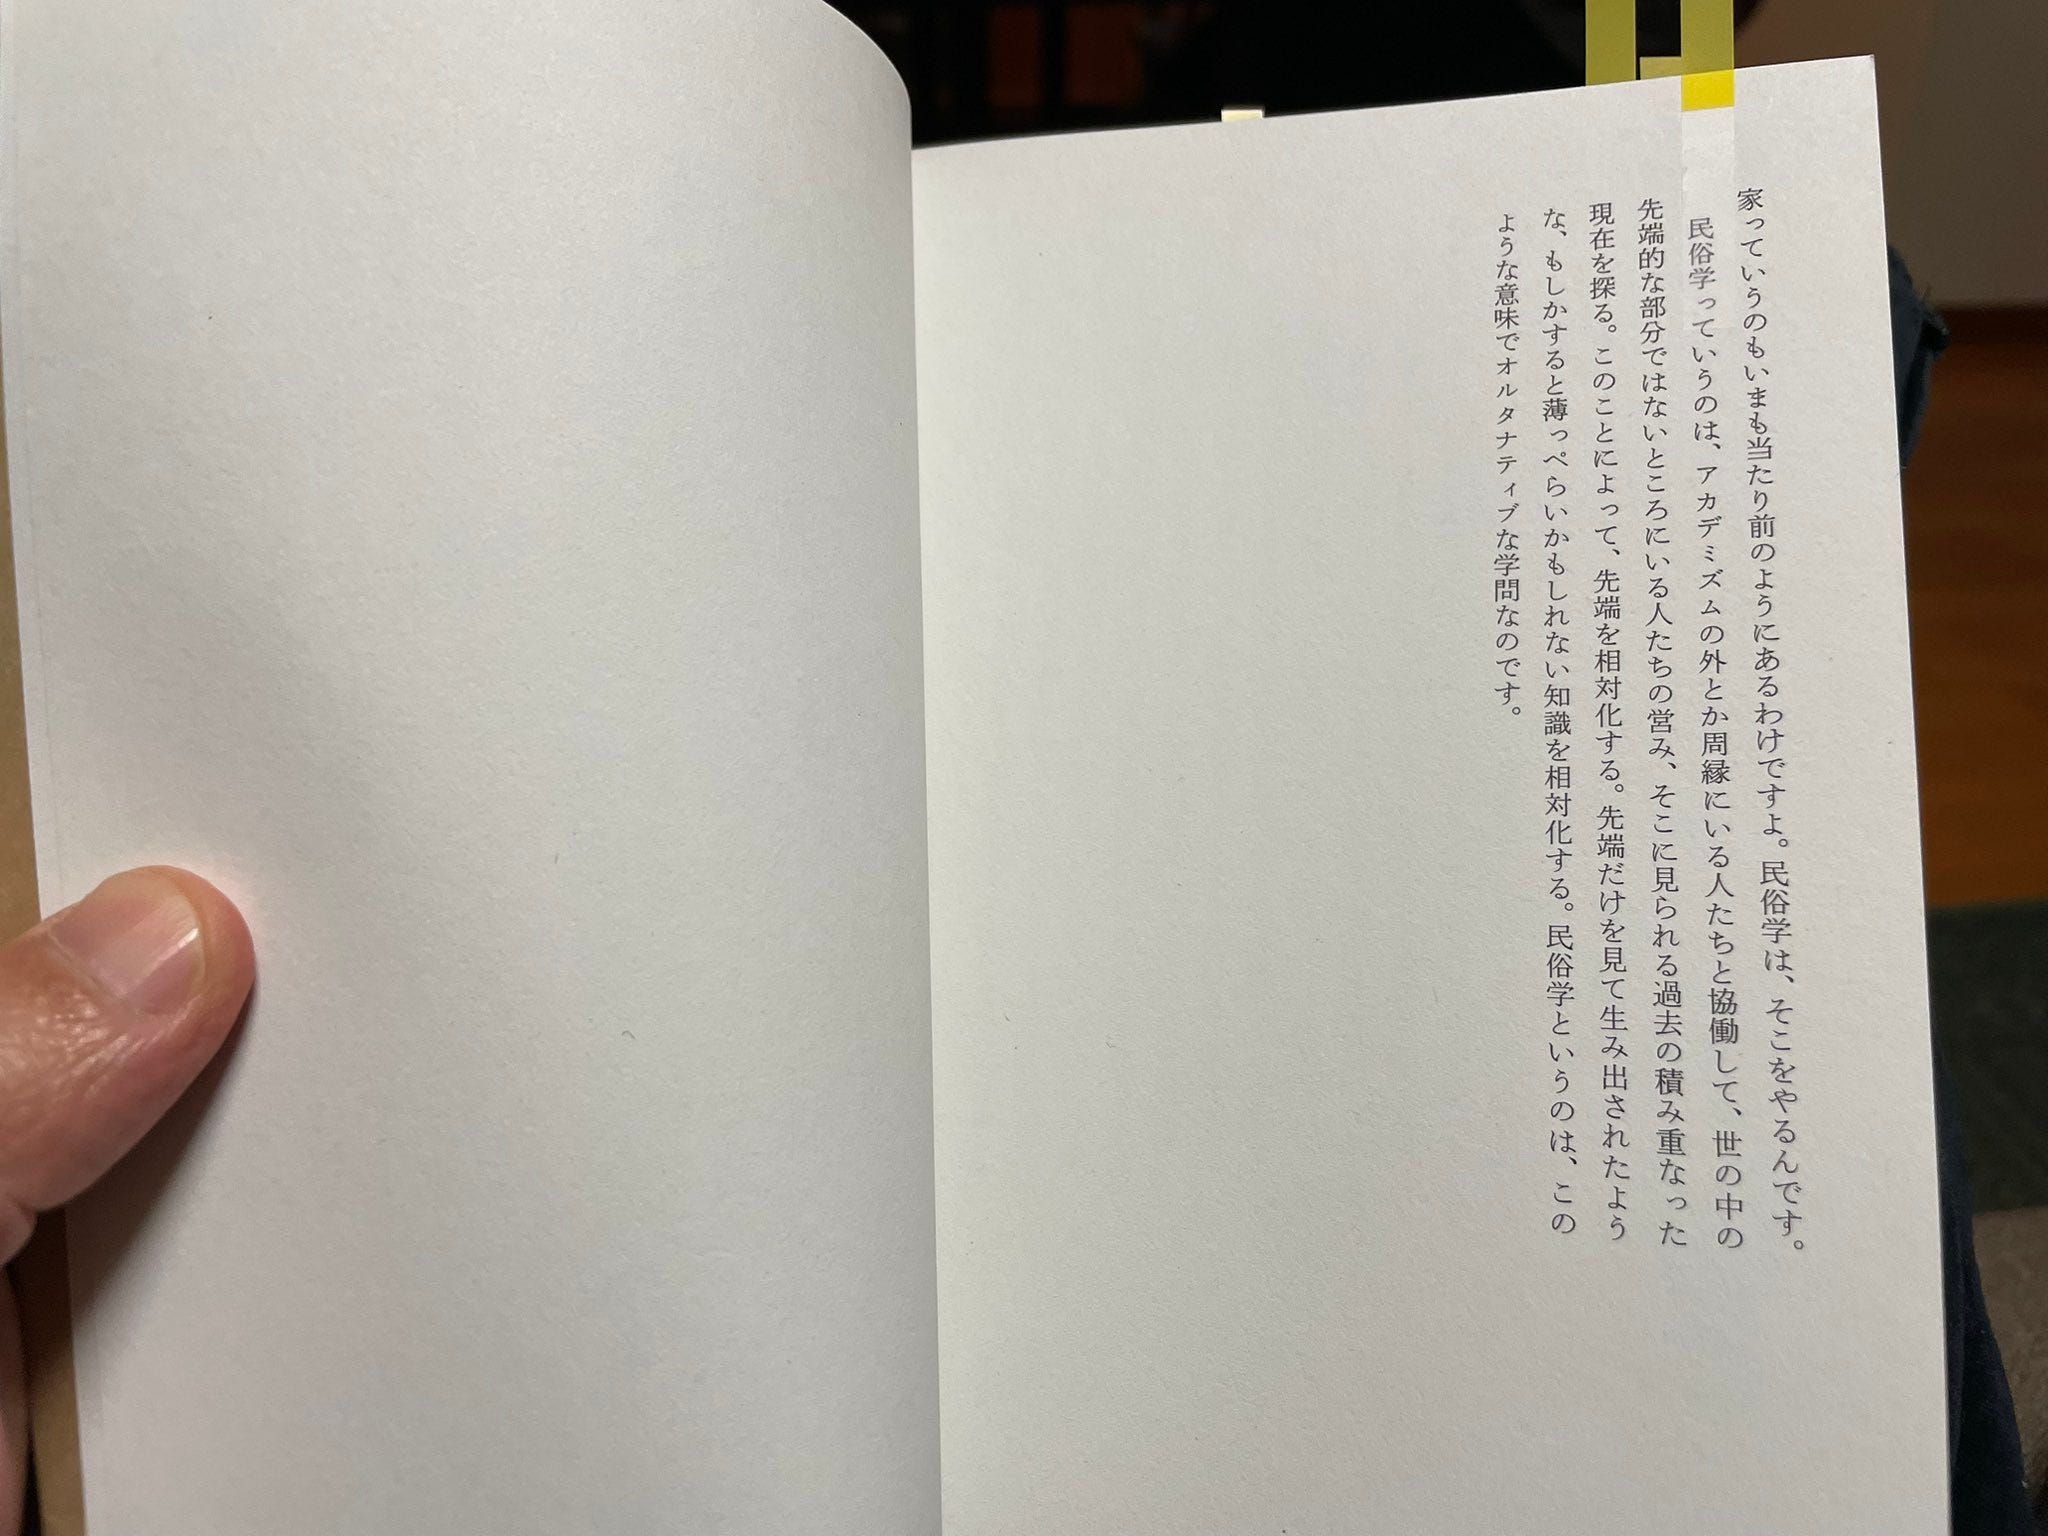 家っていうのもいまも当たり前のようにあるわけですよ。民俗学は、そこをやるんです。
民俗学っていうのは、アカデミズムの外とか周縁にいる人たちと協働して、世の中の
先端的な部分ではないところにいる人たちの営み、そこに見られる過去の積み重なった
現在を探る。このことによって、先端を相対化する。先端だけを見て生み出されたよう
な、もしかすると薄っぺらいかもしれない知識を相対化する。民俗学というのは、この
ような意味でオルタナティブな学問なのです。